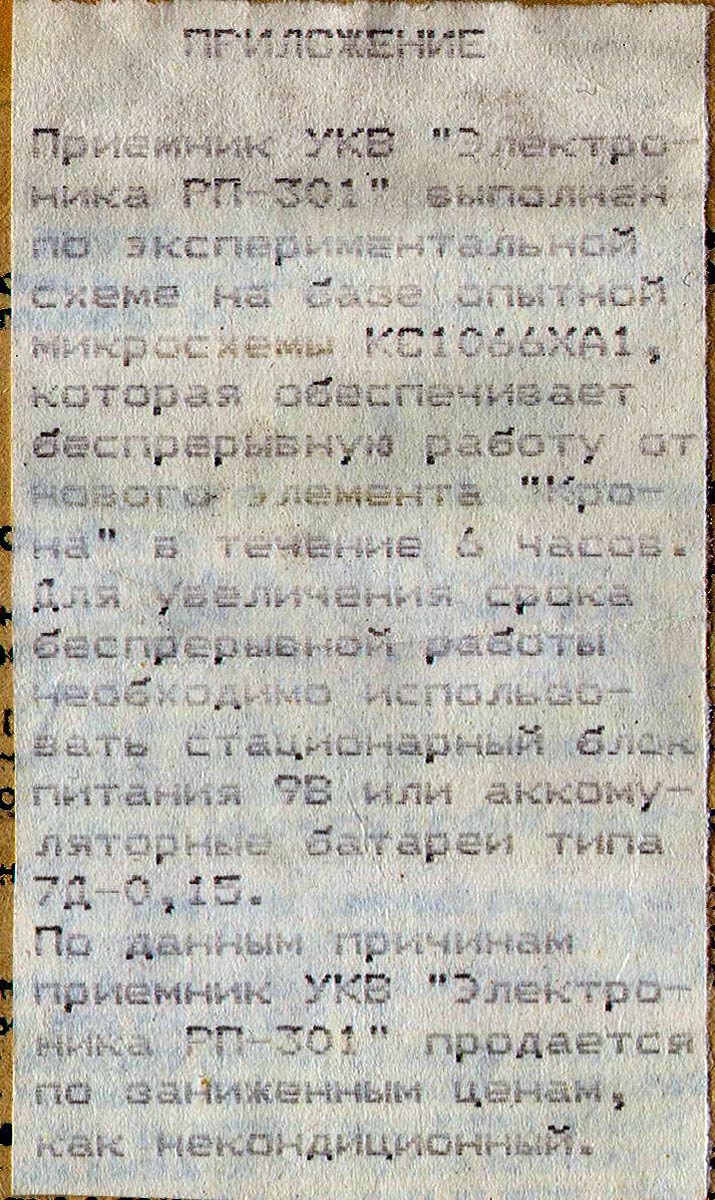 ПРИЛОЖЕНИЕ
Приемник УКВ "Электро-
ника РП-301" выполнен
по экспериментальной
схеме на базе опытной
микросхемы КС1066ХА1,
которая обеспечивает
беспрерывную работу от
нового элемента "Кро-
на" в течение 6 часов.
Для увеличения срока
беспрерывной работы
необходимо использо-
вать стационарный блок
питания 9В или аккому-
ляторные батареи типа
7Д-0,15.
По данным причинам
приемник УКВ "Электро-
ника РП-301" продается
по заниженным ценам,
как некондиционный.